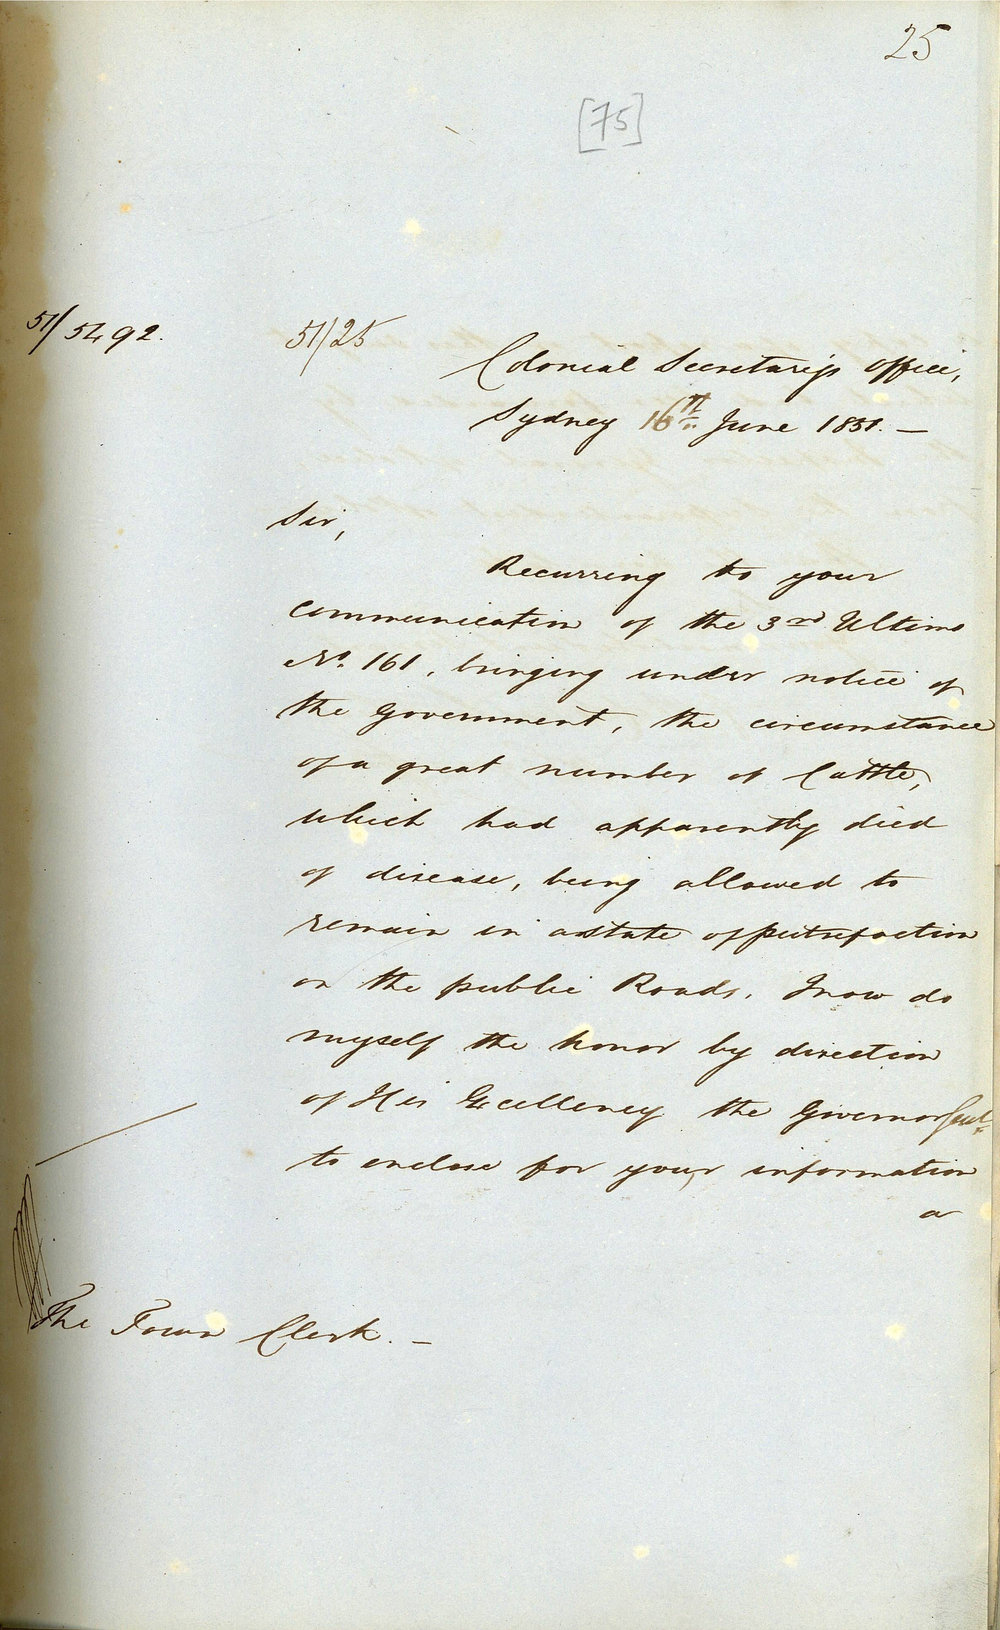 25
[75]
51/5492.
51/25
Colonial Secretary's Office,
Sydney 16th June 1851. —
Sir,
Recurring to your
communication of the 3rd Ultimo
No. 161, bringing under notice of
the Government, the circumstance
of a great number of Cattle,
which had apparently died
of disease, being allowed to
remain in a state of putrefaction
on the public Roads. I now do
myself the honor by direction
of His Excellency the Governor Genl.
to enclose for your information
a
The Town Clerk. —